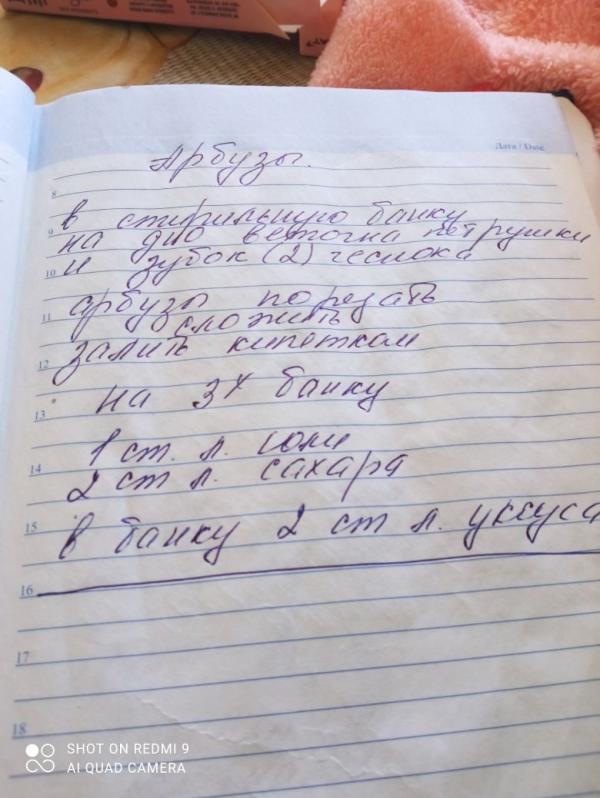 Дата / Date
Арбузы.
8
в стирильную банку
9 на дно веточка петрушки
10 и зубок (2) чеснока
11 арбузы порезать
сложить
12 залить кипятком
13 на 3х банку
14 1 ст. л. соли
2 ст л. сахара
15 в банку 2 ст л. уксуса
16
17
18
SHOT ON REDMI 9
AI QUAD CAMERA